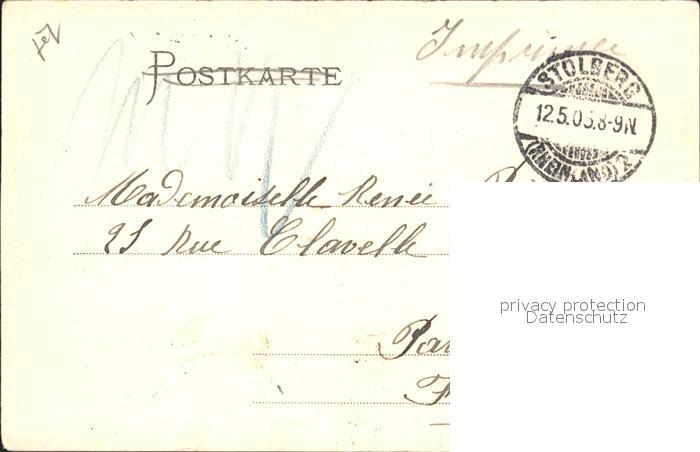 Imprimée
POSTKARTE
STOLBERG
12.5.05.8-9N.
(RHEINLAND) 2
Mademoiselle Renée
25 Rue Clavelle
privacy protection
Datenschutz